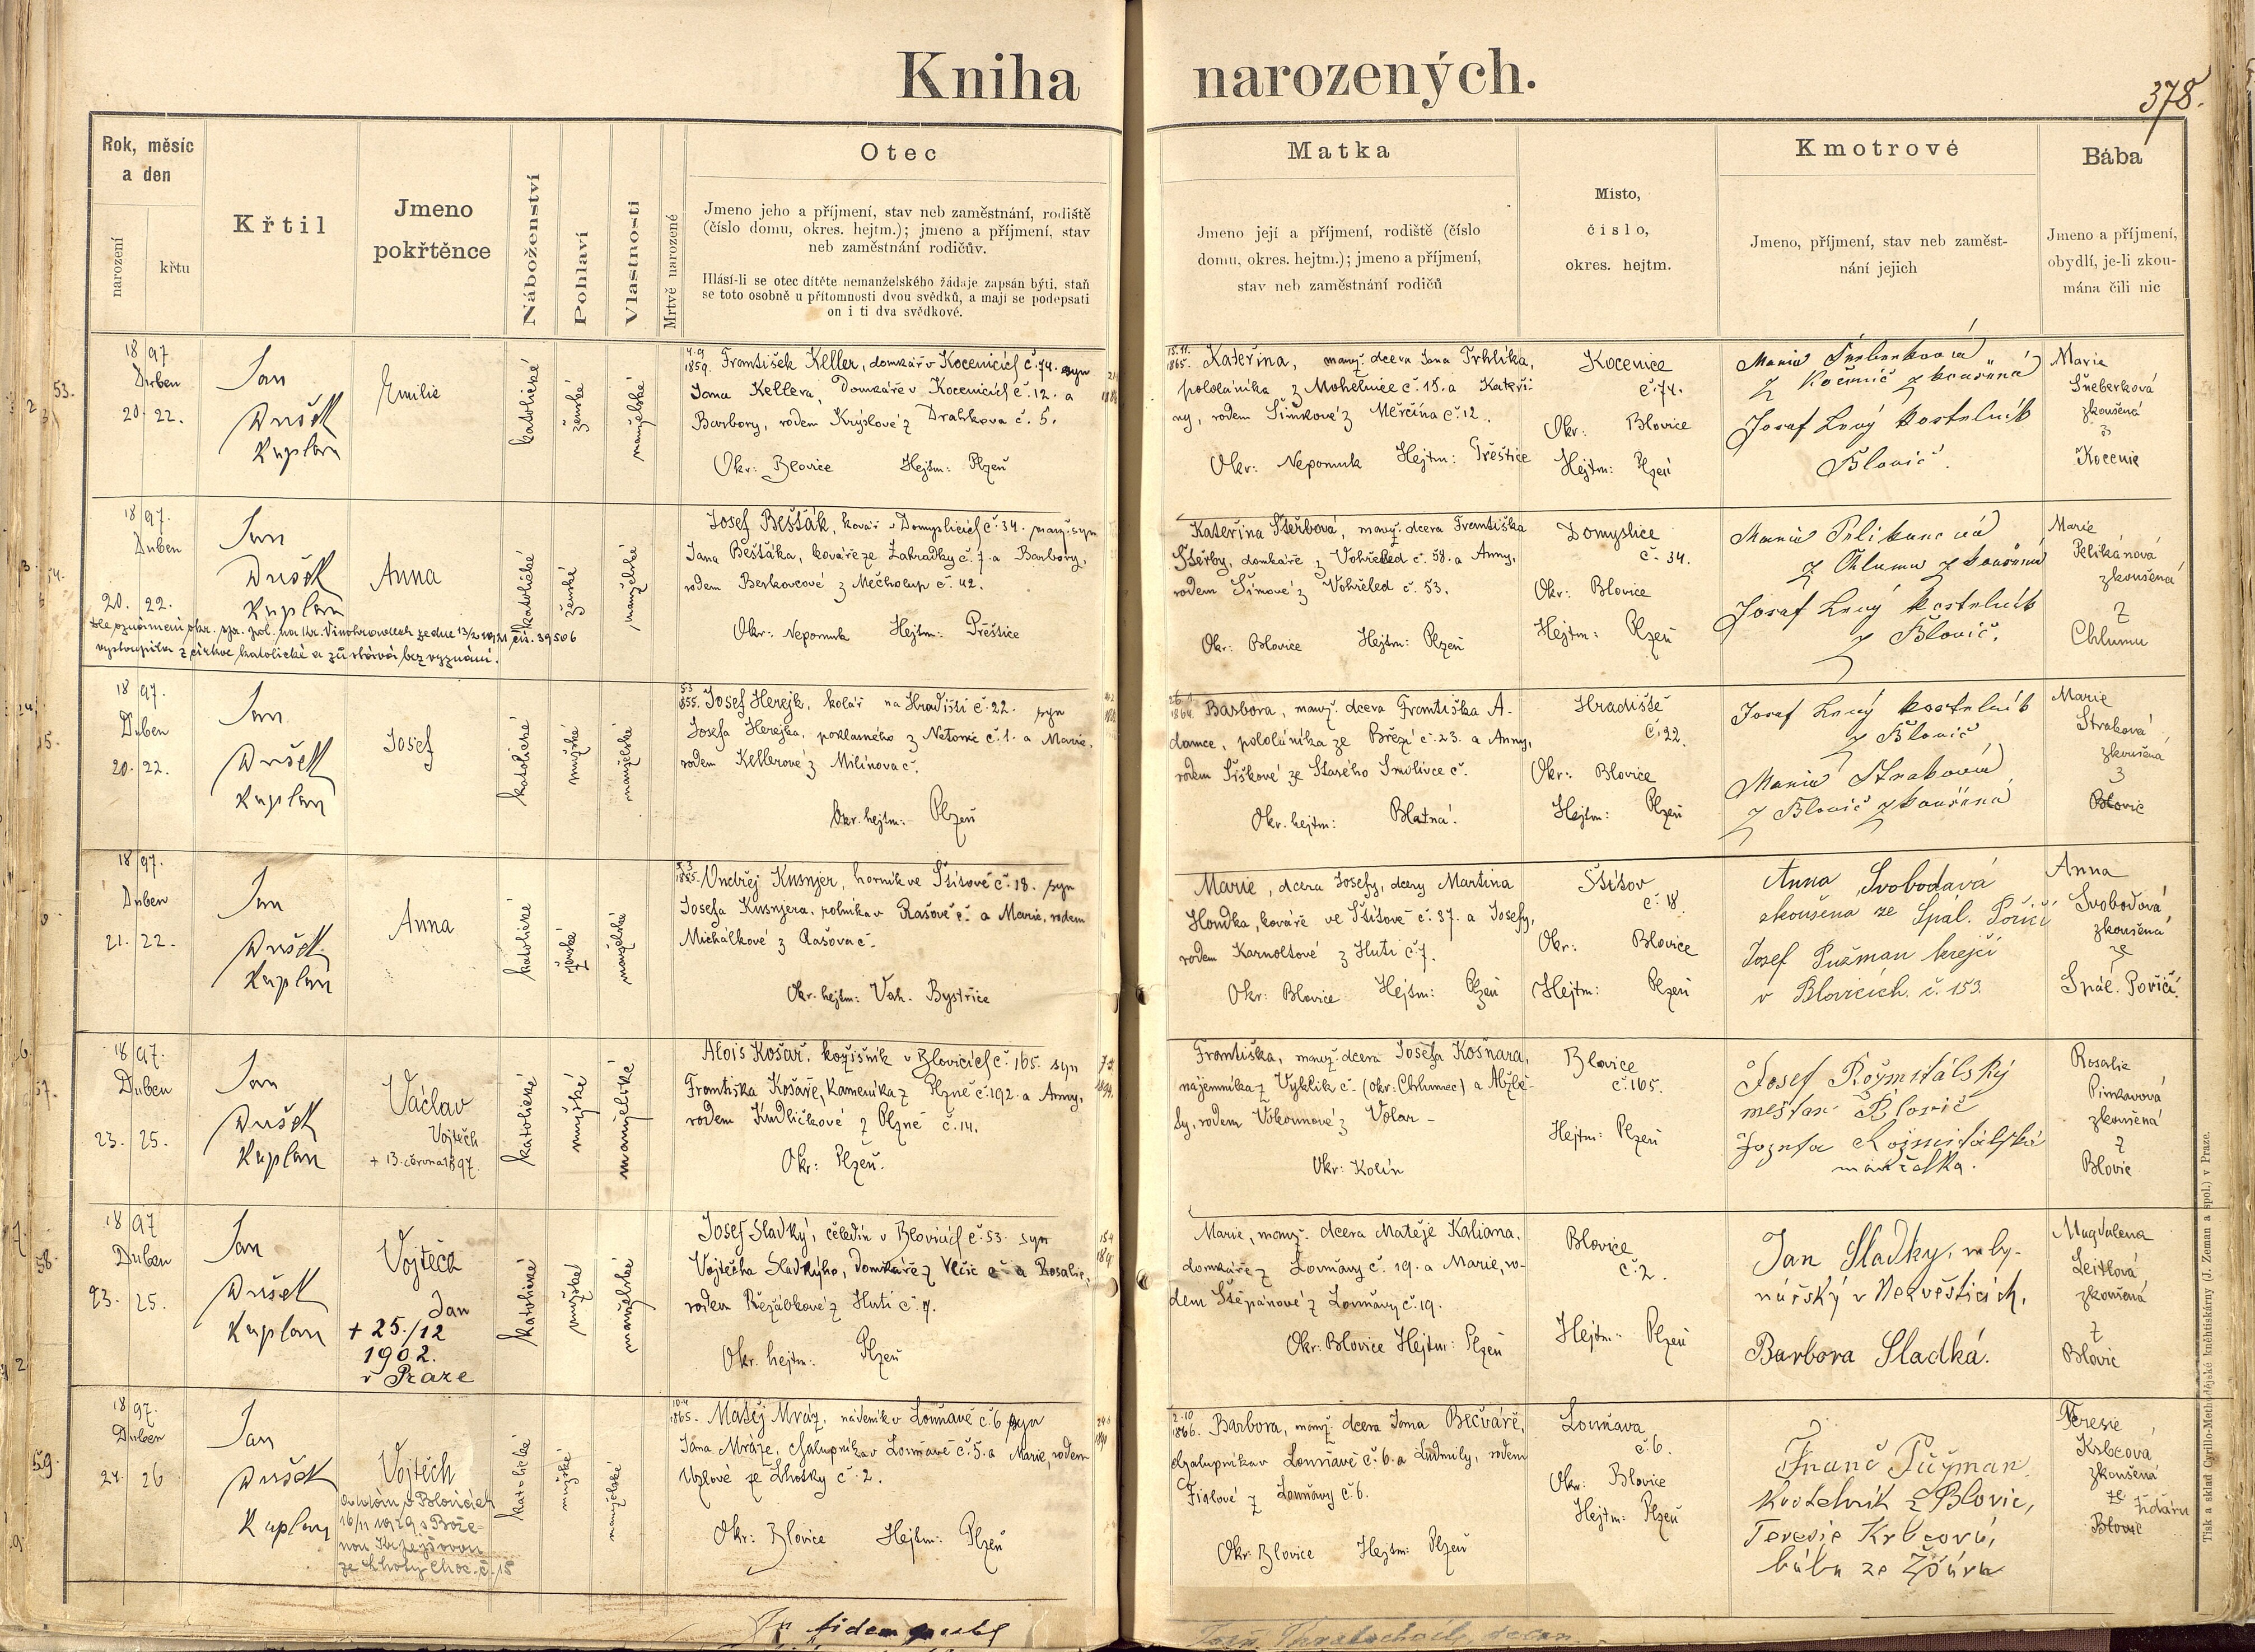 Kniha narozených.
378.
Rok, měsíc
a den
narození
křtu
Křtil
Jmeno
pokřtěnce
Náboženství
Pohlaví
Vlastnosti
Mrtvě narozené
Otec
Jmeno jeho a příjmení, stav neb zaměstnání, rodiště
(číslo domu, okres. hejtm.); jmeno a příjmení, stav
neb zaměstnání rodičův.
Hlásí-li se otec dítěte nemanželského žádaje zapsán býti, staň
se toto osobně u přítomnosti dvou svědků, a mají se podepsati
on i ti dva svědkové.
Matka
Jmeno její a příjmení, rodiště (číslo
domu, okres. hejtm.); jmeno a příjmení,
stav neb zaměstnání rodičů
Misto,
číslo,
okres. hejtm.
Kmotrové
Jmeno, příjmení, stav neb zaměst-
nání jejich
Bába
Jmeno a příjmení,
obydlí, je-li zkou-
mána čili nic
53.
18 97
Duben
20. 22.
Jan
Dušek
Kaplan
Emilie
katolické
ženské
manželské
4.9
1859. František Keller, domkář v Kocenicích č. 74. syn
Jana Kellera, Domkáře v Kocenicích č. 12. a
Barbory, rodem Krýslové z Drahkova č. 5.
Okr: Blovice Hejtm: Plzeň
15.11.
1865. Kateřina, manž. dcera Jana Trhlíka,
pololáníka z Mohelnice č. 15. a Kateři-
ny, rodem Šimkové z Měrčína č. 12.
Okr: Nepomuk Hejtm: Přeštice
Kocenice
č. 74.
Okr: Blovice
Hejtm: Plzeň
z Kocenic zkoušená
Josef Levý kostelník
z Blovic.
Marie
Šneberková
zkoušená
z
Kocenic
54.
18 97.
Duben
20. 22.
Jan
Dušek
Kaplan
Anna
katolické
ženské
manželské
Josef Bešťák, kovář v Domyslicích č. 34. manž. syn
Jana Bešťáka, kováře ze Zahrádky č. 7. a Barbory,
rodem Berkovcové z Měcholup č. 42.
Okr: Nepomuk Hejtm: Přeštice
Kateřina Štěrbová, manž. dcera Františka
Štěrby, domkáře z Vohřeled č. 58. a Anny,
rodem Šímové z Vohřeled č. 53.
Okr: Blovice Hejtm: Plzeň
Domyslice
č. 34.
Okr: Blovice
Hejtm: Plzeň
Marie Pelikánová
z Chlumu zkoušená
Josef Levý kostelník
z Blovic.
Marie
Pelikánová
zkoušená
z
Chlumu
vystoupila z církve katolické a zůstává bez vyznání.
18 97.
Duben
20. 22.
Jan
Dušek
Kaplan
Josef
katolické
mužské
manželské
5.3
1855. Josef Herejk, kolář na Hradišti č. 22. syn
Josefa Herejka, poklasného z Netonic č. 1. a Marie,
rodem Kellerové z Milínova č.
Okr. hejtm: Plzeň
1864. Barbora, manž. dcera Františka A-
damce, pololáníka ze Březí č. 23. a Anny,
rodem Šiškové ze Starého Smolivce č.
Okr. hejtm: Blatná.
Hradiště
č. 22.
Okr: Blovice
Hejtm: Plzeň
Josef Levý kostelník
z Blovic
Marie Straková
z Blovic zkoušená
Marie
Straková
zkoušená
z
Blovic
18 97.
Duben
21. 22.
Jan
Dušek
Kaplan
Anna
katolické
ženské
manželské
Ondřej Kusnjer, horník ve Štítově č. 18. syn
Josefa Kusnjera, rolníka v Rašově č. a Marie, rodem
Michálkové z Rašova č.
Okr. hejtm: Vah. Bystřice
Marie, dcera Josefy, dcery Martina
Houdka, kováře ve Štítově č. 37. a Josefy,
rodem Karnoltové z Hutí č. 7.
Okr: Blovice Hejtm: Plzeň
Štítov
č. 18
Okr: Blovice
Hejtm: Plzeň
Anna Svobodavá
zkoušena ze Spál. Poříčí
Josef Pužman krejčí
v Blovicích. č. 153.
Anna
Svobodová
zkoušená
ze
Spál. Poříčí.
57.
18 97.
Duben
23. 25.
Jan
Dušek
Kaplan
Václav
Vojtěch
+ 13. června 1897.
katolické
mužské
manželské
Alois Košař, kožišník v Blovicích č. 165. syn
Františka Košaře, Kameníka z Plzně č. 192. a Anny,
rodem Kudličkové z Plzně č. 14.
Okr: Plzeň.
Františka, manž. dcera Josefa Košnara,
nájemníka z Vyklik č. (okr: Chlumec) a Alžbě-
ty, rodem Vokounové z Volar -
Okr: Kolín
Blovice
č. 165.
Hejtm: Plzeň
Josef Rožmitálský
měšťan Blovic
Josefa Rožmitálská
manželka.
Rosalie
Pinkavová
zkoušená
z
Blovic
58.
18 97
Duben
23. 25.
Jan
Dušek
Kaplan
Vojtěch
Jan
+ 25./12
1902.
v Praze
katolické
mužské
manželské
Josef Sladký, čeledín v Blovicích č. 53. syn
Vojtěcha Sladkýho, domkáře z Vlčic č. a Rosalie,
rodem Řežábkové z Hutí č. 7.
Okr. hejtm: Plzeň
Marie, manž. dcera Matěje Kaliana,
domkáře z Louňavy č. 19. a Marie, ro-
dem Štěpánové z Louňavy č. 19.
Okr: Blovice Hejtm: Plzeň
Blovice
č. 2.
Hejtm: Plzeň
Jan Sladky, mly-
nářský v Nezvěsticích,
Barbora Sladká.
Magdalena
Leitlová
zkoušená
z
Blovic
59.
18 97.
Duben
24. 26
Jan
Dušek
Kaplan
Vojtěch
oddán v Blovicích
16/11 1929 s Bože-
nou
ze Lhoty Choc. č. 15
katolické
mužské
manželské
10.4
1865. Matěj Mráz, nádeník v Louňavě č. 6 syn
Jana Mráze, chalupníka v Louňavě č. 5. a Marie, rodem
Uzlové ze Lhotky č. 2.
Okr: Blovice Hejtm: Plzeň
2.10
1866. Barbora, manž. dcera Jana Bečváře,
chalupníka v Louňavě č. 6. a Ludmily, rodem
Fialové z Louňavy č. 6.
Okr: Blovice Hejtm: Plzeň
Louňava
č. 6.
Okr: Blovice
Hejtm: Plzeň
Franc Pužman
Kostelník z Blovic,
Teresie Krbcová,
bába ze Žďáru
Teresie
Krbcová
zkoušená
ze Žďáru
Blovic
In fidem
Tisk a sklad Cyrillo-Methodějské knihtiskárny (J. Zeman a spol.) v Praze.